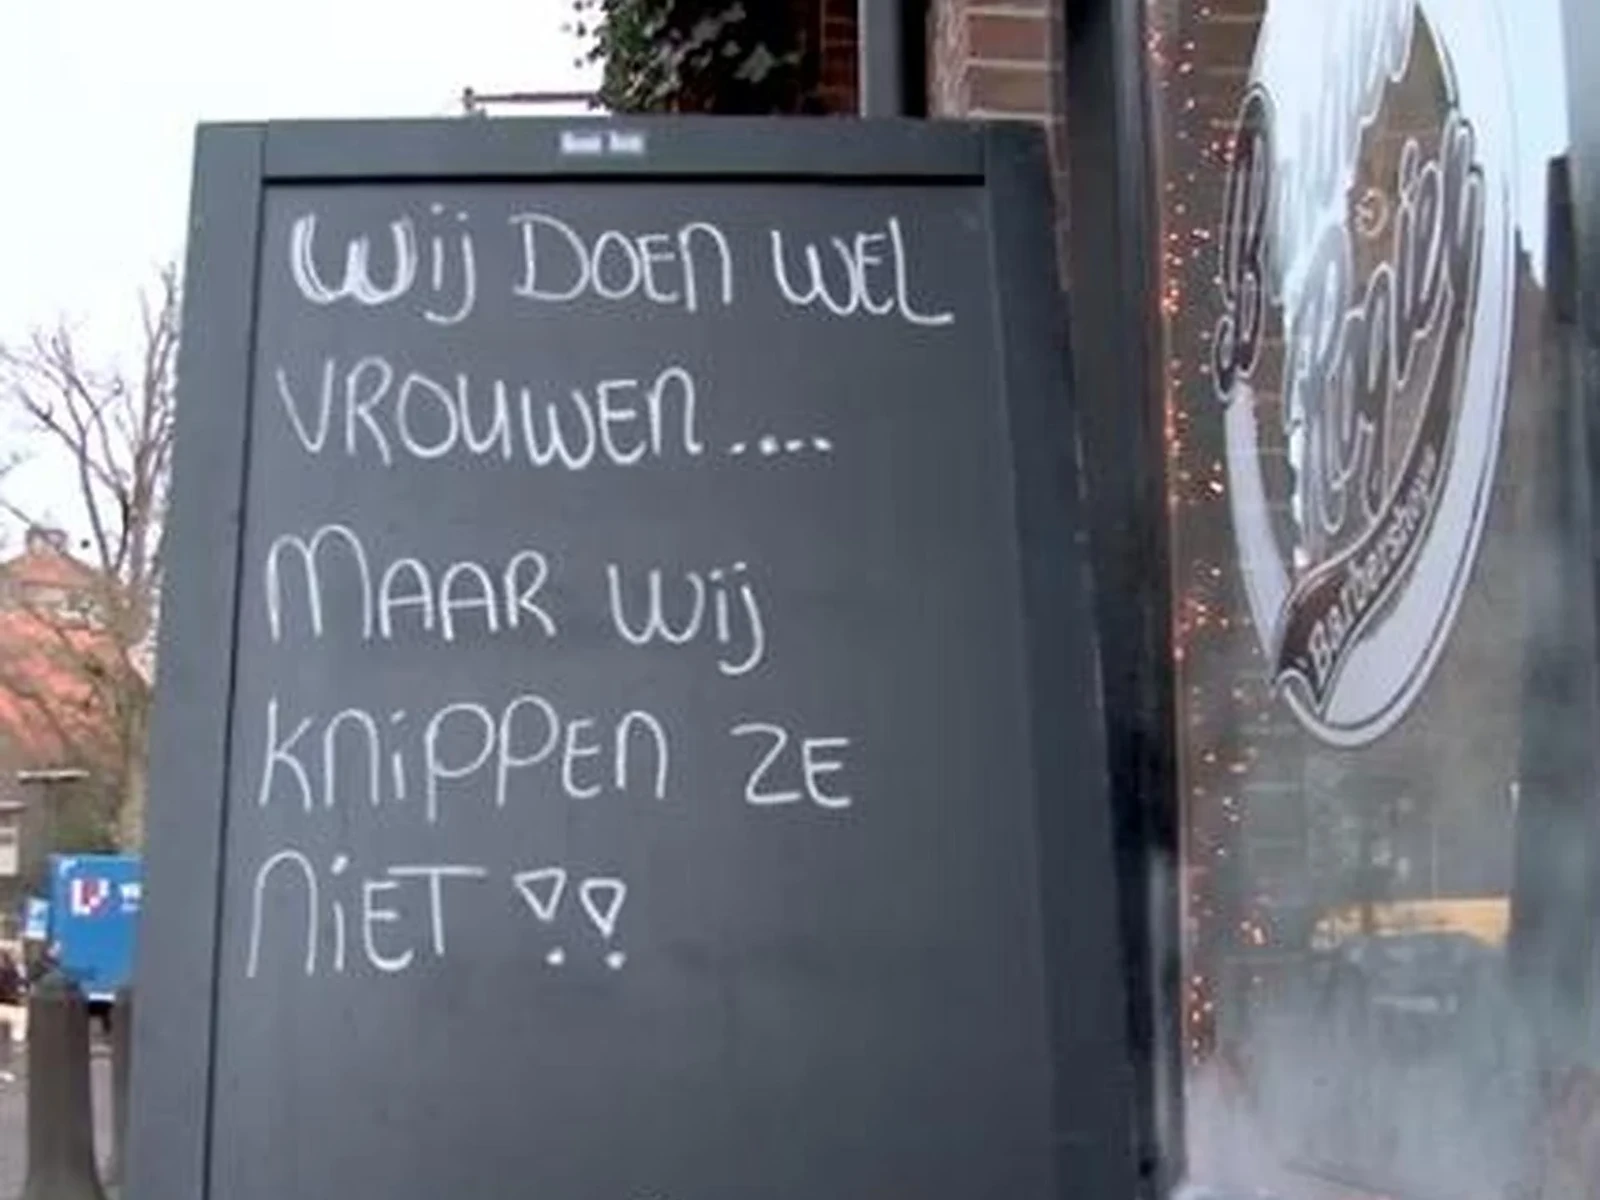 Wij DOEN WEL
VROUWEN....
MAAR Wij
KNiPPEN ZE
NiET !!
Barbershop